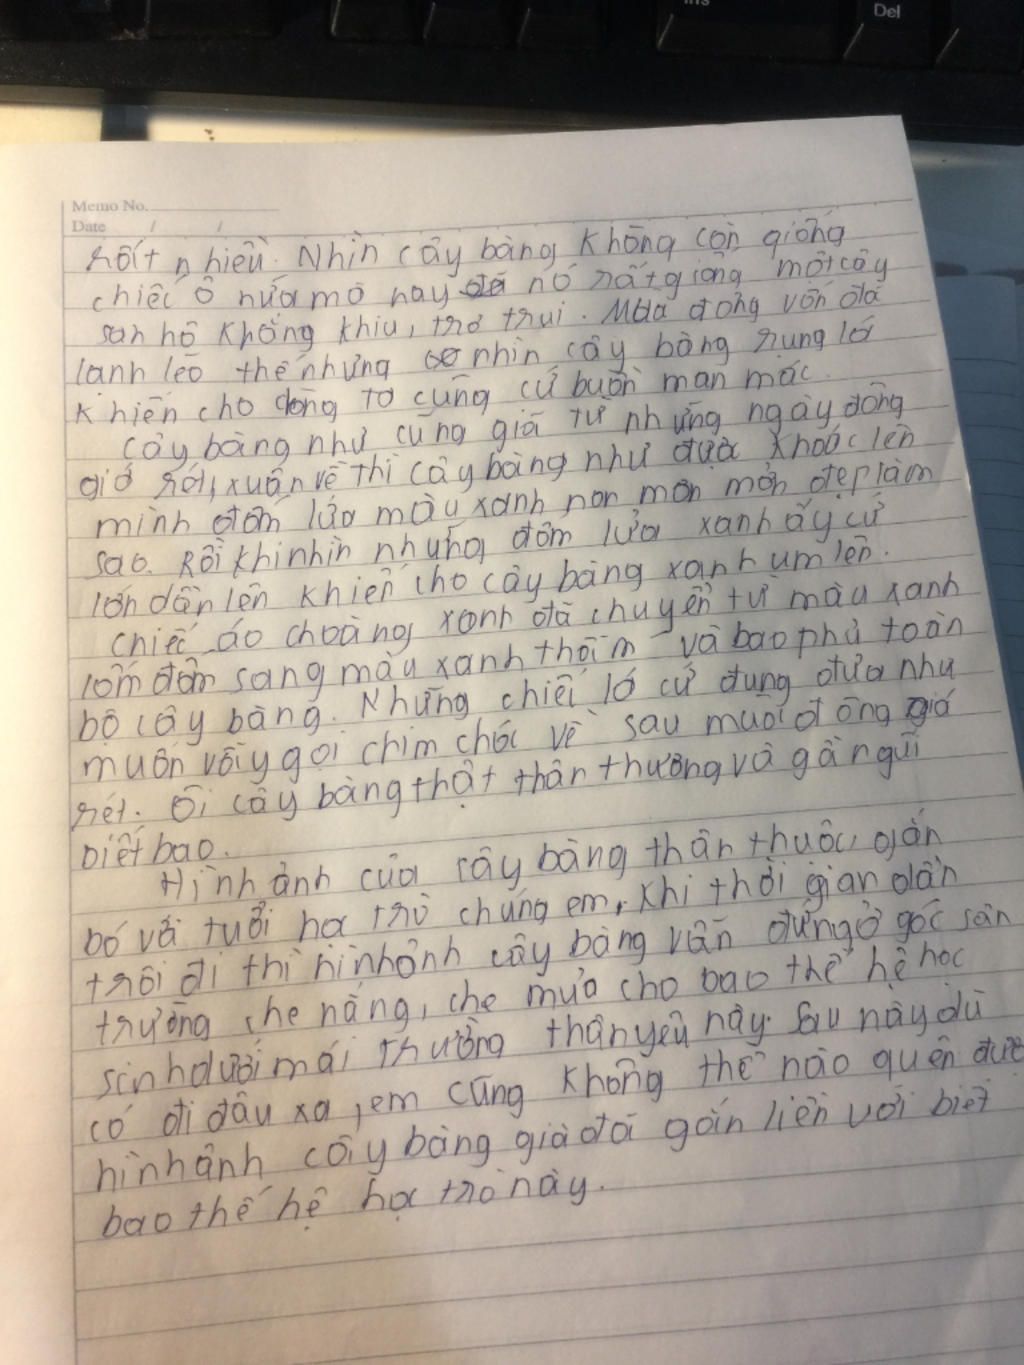 Ins
Del
Memo No.
Date / /
rất nhiều. Nhìn cây bàng không còn giống
chiếc ô nữa mà nay nó rất giống một cây
san hô khẳng khiu, trơ trụi. Mùa đông vốn đã
lạnh lẽo thế nhưng nhìn cây bàng rụng lá
khiến cho lòng ta cũng cứ buồn man mác.
Cây bàng như cũng giã từ những ngày đông
giá rét, xuân về thì cây bàng như được khoác lên
mình đốm lửa màu xanh non mơn mởn đẹp làm
sao. Rồi khi nhìn những đốm lửa xanh ấy cứ
lớn dần lên khiến cho cây bàng xanh um lên.
Chiếc áo choàng xanh đã chuyển từ màu xanh
lốm đốm sang màu xanh thẫm và bao phủ toàn
bộ cây bàng. Những chiếc lá cứ đung đưa như
muốn vẫy gọi chim chóc về sau mùa đông giá
rét. Ôi cây bàng thật thân thương và gần gũi
biết bao.
Hình ảnh của cây bàng thân thuộc, gắn
bó với tuổi học trò chúng em, khi thời gian dần
trôi đi thì hình ảnh cây bàng vẫn đứng ở góc sân
trường, che nắng, che mưa cho bao thế hệ học
sinh dưới mái trường thân yêu này. Sau này dù
có đi đâu xa, em cũng không thể nào quên được
hình ảnh cây bàng già đã gắn liền với biết
bao thế hệ học trò này.